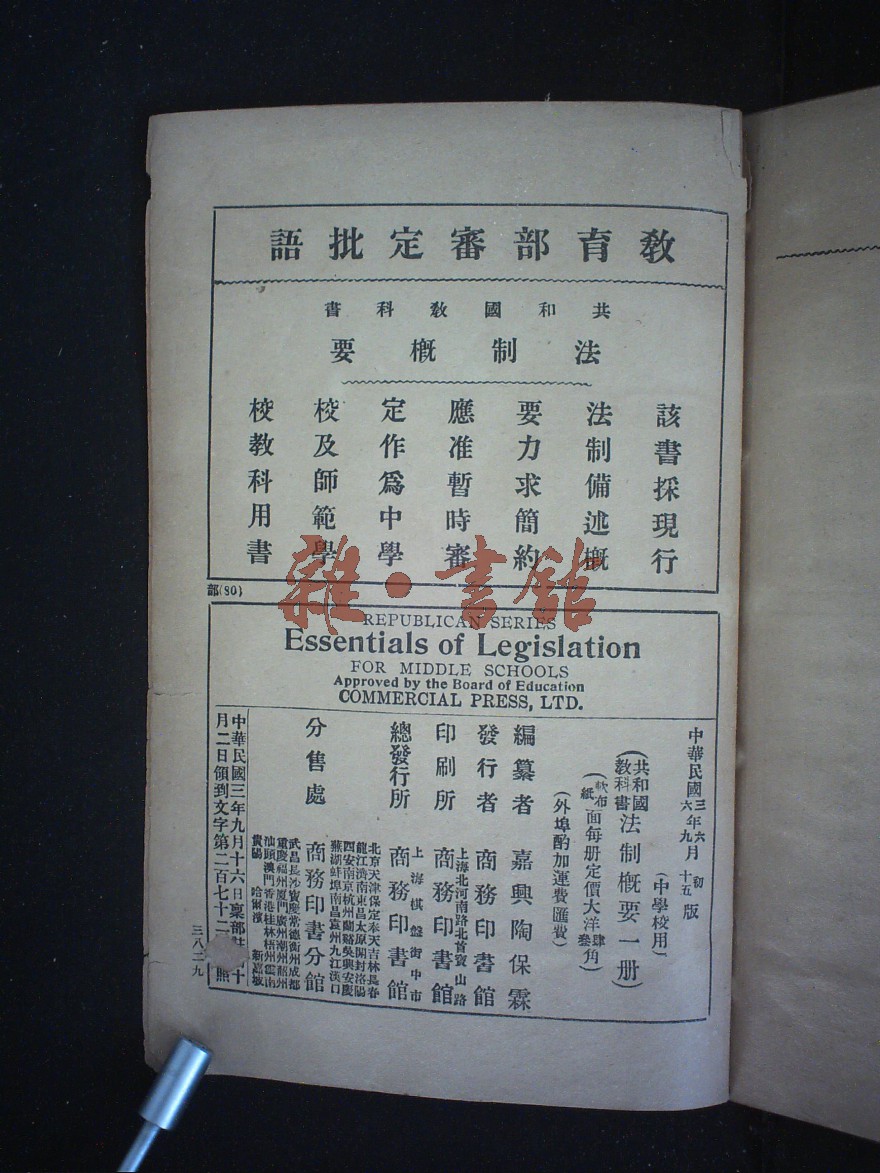 教育部審定批語
共和國教科書
法制概要
該書採現行
法制備述概
要力求簡約
應准暫時審
定作爲中學
校及師範學
校教科用書
部(80)
雜·書館
REPUBLICAN SERIES
Essentials of Legislation
FOR MIDDLE SCHOOLS
Approved by the Board of Education
COMMERCIAL PRESS, LTD.
中華民國三年六月初版
六年九月十五版
(中學校用)
(共和國教科書)法制概要一册
(紙面每册定價大洋叁角)
(軟布面每册定價大洋肆角)
(外埠酌加運費匯費)
編纂者 嘉興陶保霖
發行者 商務印書館
上海北河南路北首寶山路
印刷所 商務印書館
上海棋盤街中市
總發行所 商務印書館
北京天津保定奉天吉林長春
龍江濟南東昌太原開封洛陽
西安南京杭州蘭谿吳興安慶
蕪湖蚌埠南昌袁州九江漢口
分售處 商務印書分館
武昌長沙寶慶常德衡州成都
重慶福州廈門廣州潮州韶州
汕頭澳門香港桂林梧州雲南
貴陽 哈爾濱 新嘉坡
中華民國三年九月十六日稟部註 十
月二日領到文字第二百七十二 照
三八二九